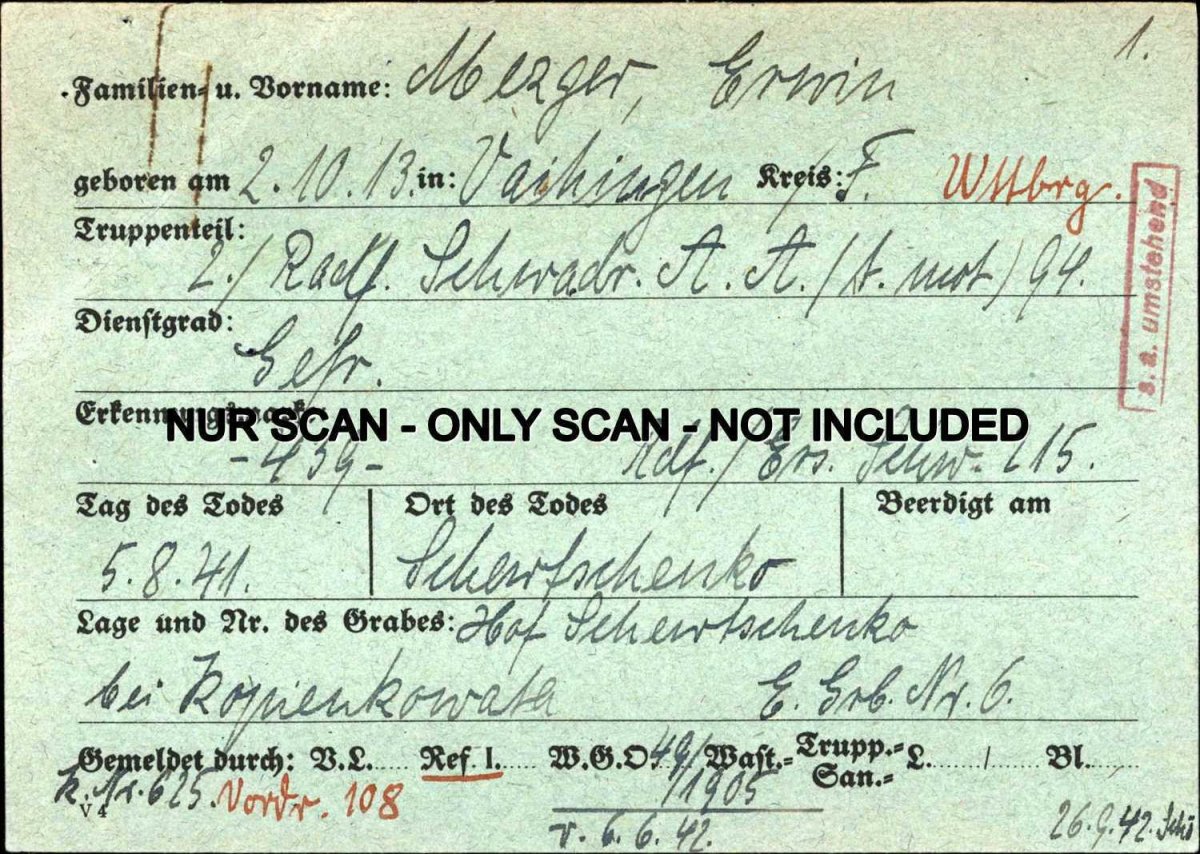 1.
Familien- u. Vorname: Mezger, Erwin
geboren am 2.10.13. in: Vaihingen Kreis: /F. Wttbrg.
Truppenteil:
2./ Radf. Schwadr. A. A. /(t. mot) 94.
s. a. umstehend
Dienstgrad:
Gefr.
Erkennungsmark
NUR SCAN - ONLY SCAN - NOT INCLUDED
-439- Rdf./ Ers. Schw. 215.
Tag des Todes Ort des Todes Beerdigt am
5.8.41. Schewtschenko
Lage und Nr. des Grabes: Hof Schewtschenko
bei Kopienkowata E. Grb. Nr. 6.
Gemeldet durch: V.L..... Ref I..... W.G.O 49/ Wast.- Trupp.- San.- L....../..... Bl......
K. Nr. 625. Vordr. 108 /1905
V 4
v. 6.6.42. 26.9.42. Schö